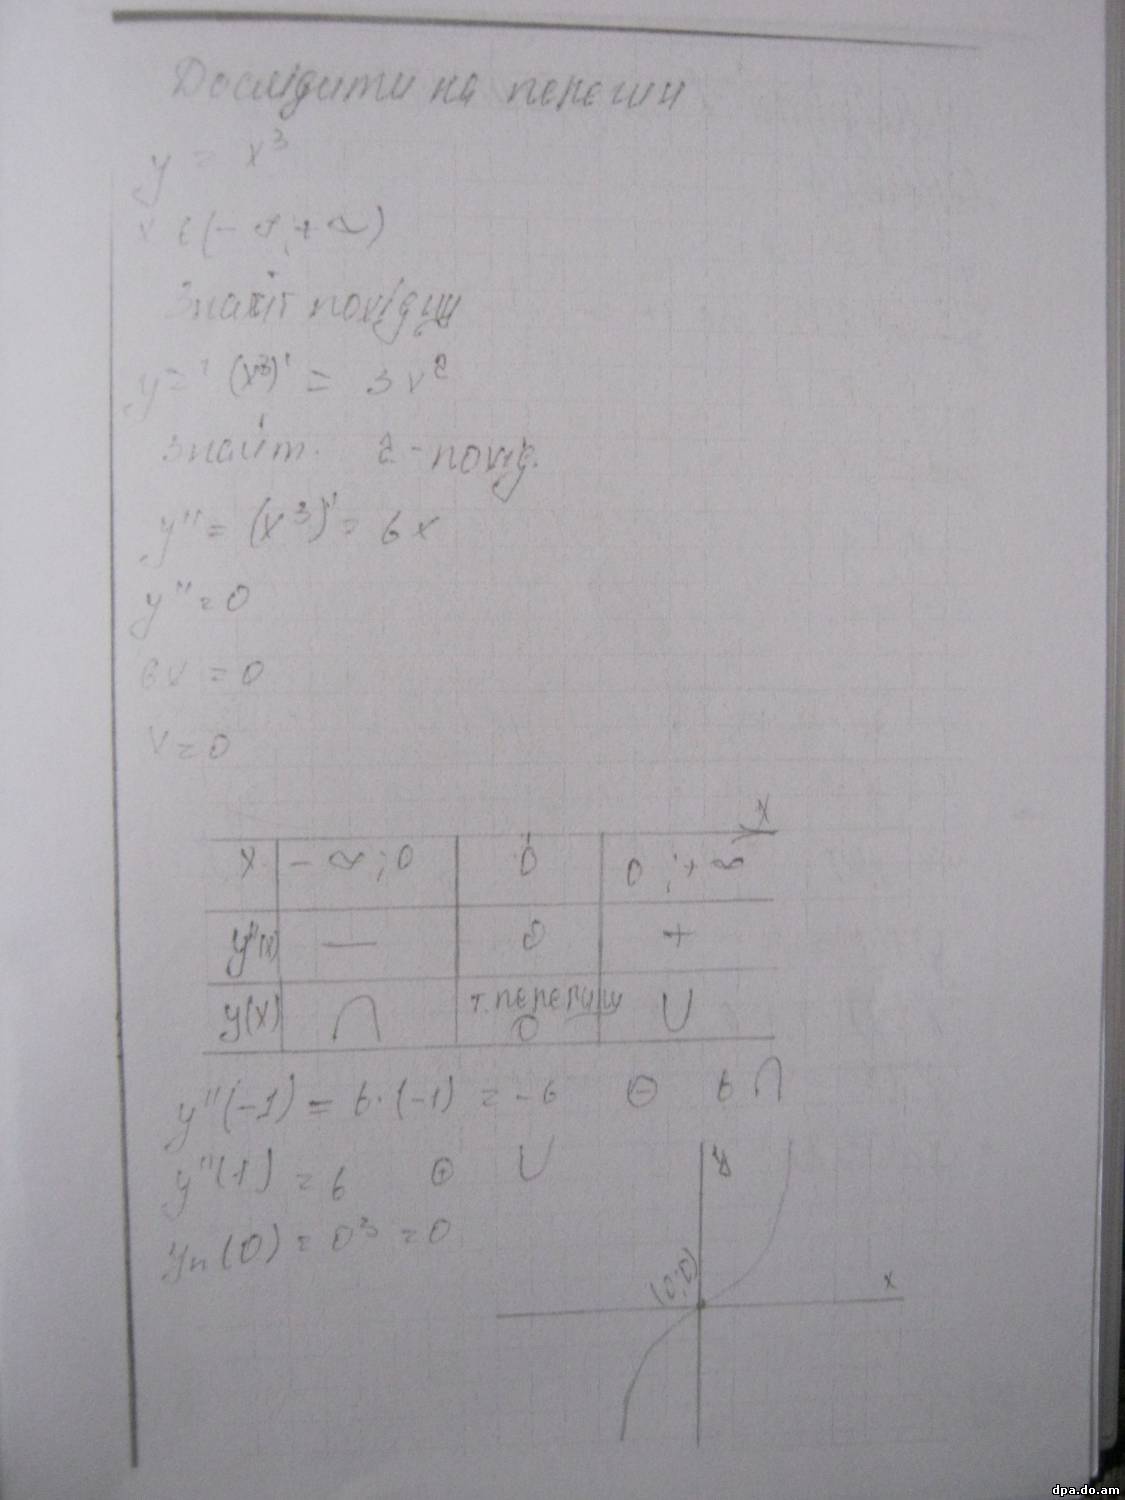 Дослідити на перегин
y = x³
x ∈ (-∞; +∞)
Знайт похідну
y = ' (x³)' = 3x²
Знайт. 2 - похід.
y'' = (x³)'' = 6x
y'' = 0
6x = 0
x = 0
x
x -∞; 0 0 0; +∞
y''(x) — 0 +
y(x) ∩ т. перегину 0 ∪
y''(-1) = 6·(-1) = -6 ⊖ ∩
y''(1) = 6 ⊕ ∪
yп(0) = 0³ = 0
y
(0;0)
x
dpa.do.am